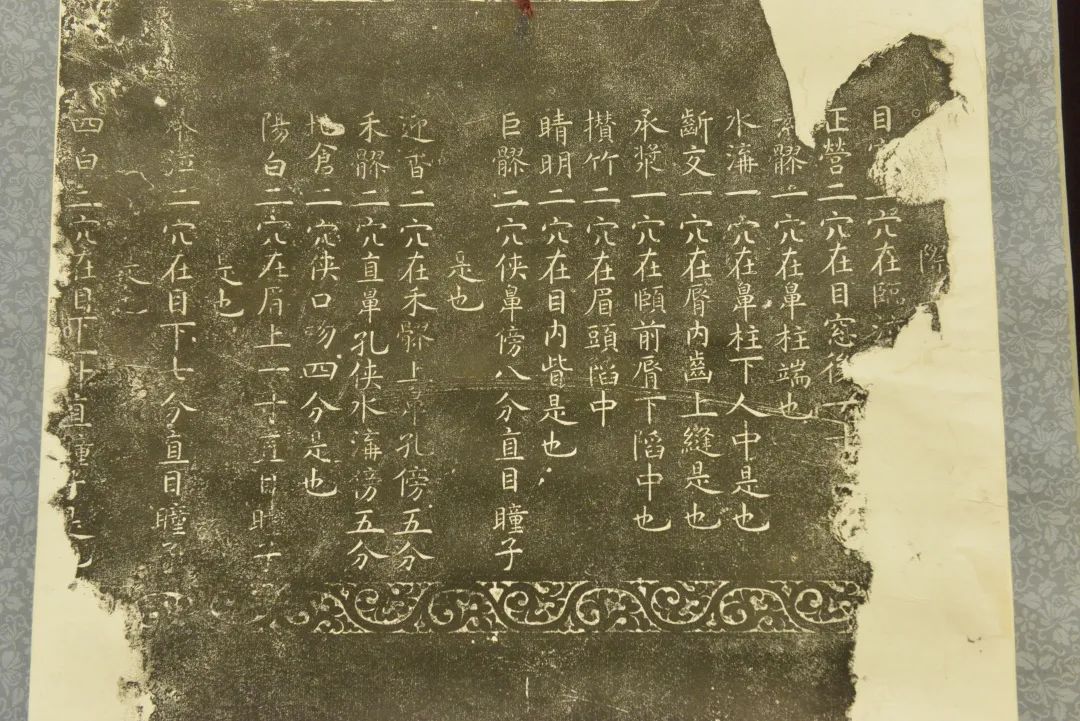 際
目 穴在臨
正營二穴在目窓後一
髎一穴在鼻柱端也
水溝一穴在鼻柱下人中是也
斷文一穴在脣内齒上縫是也
承漿一穴在頤前脣下陷中也
攅竹二穴在眉頭陷中
睛明二穴在目内眥是也
巨髎二穴俠鼻傍八分直目瞳子
是也
迎香二穴在禾髎上鼻孔傍五分
禾髎二穴直鼻孔俠水溝傍五分
地倉二穴俠口吻四分是也
陽白二穴在眉上一寸直目瞳子
是也
承泣二穴在目下七分直目瞳子
是也
四白二穴在目下一寸直瞳子是也